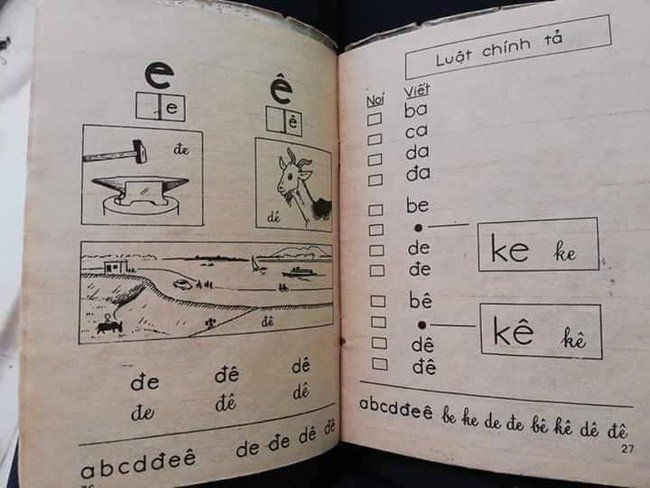 e ê
e ê
đe
dê
đê
đe đê dê
đe đê dê
abcdđeê de đe dê đê
Luật chính tả
Nói Viết
ba
ca
da
đa
be
ke ke
de
đe
bê
kê kê
dê
đê
abcdđeê be ke de đe bê kê dê đê
27